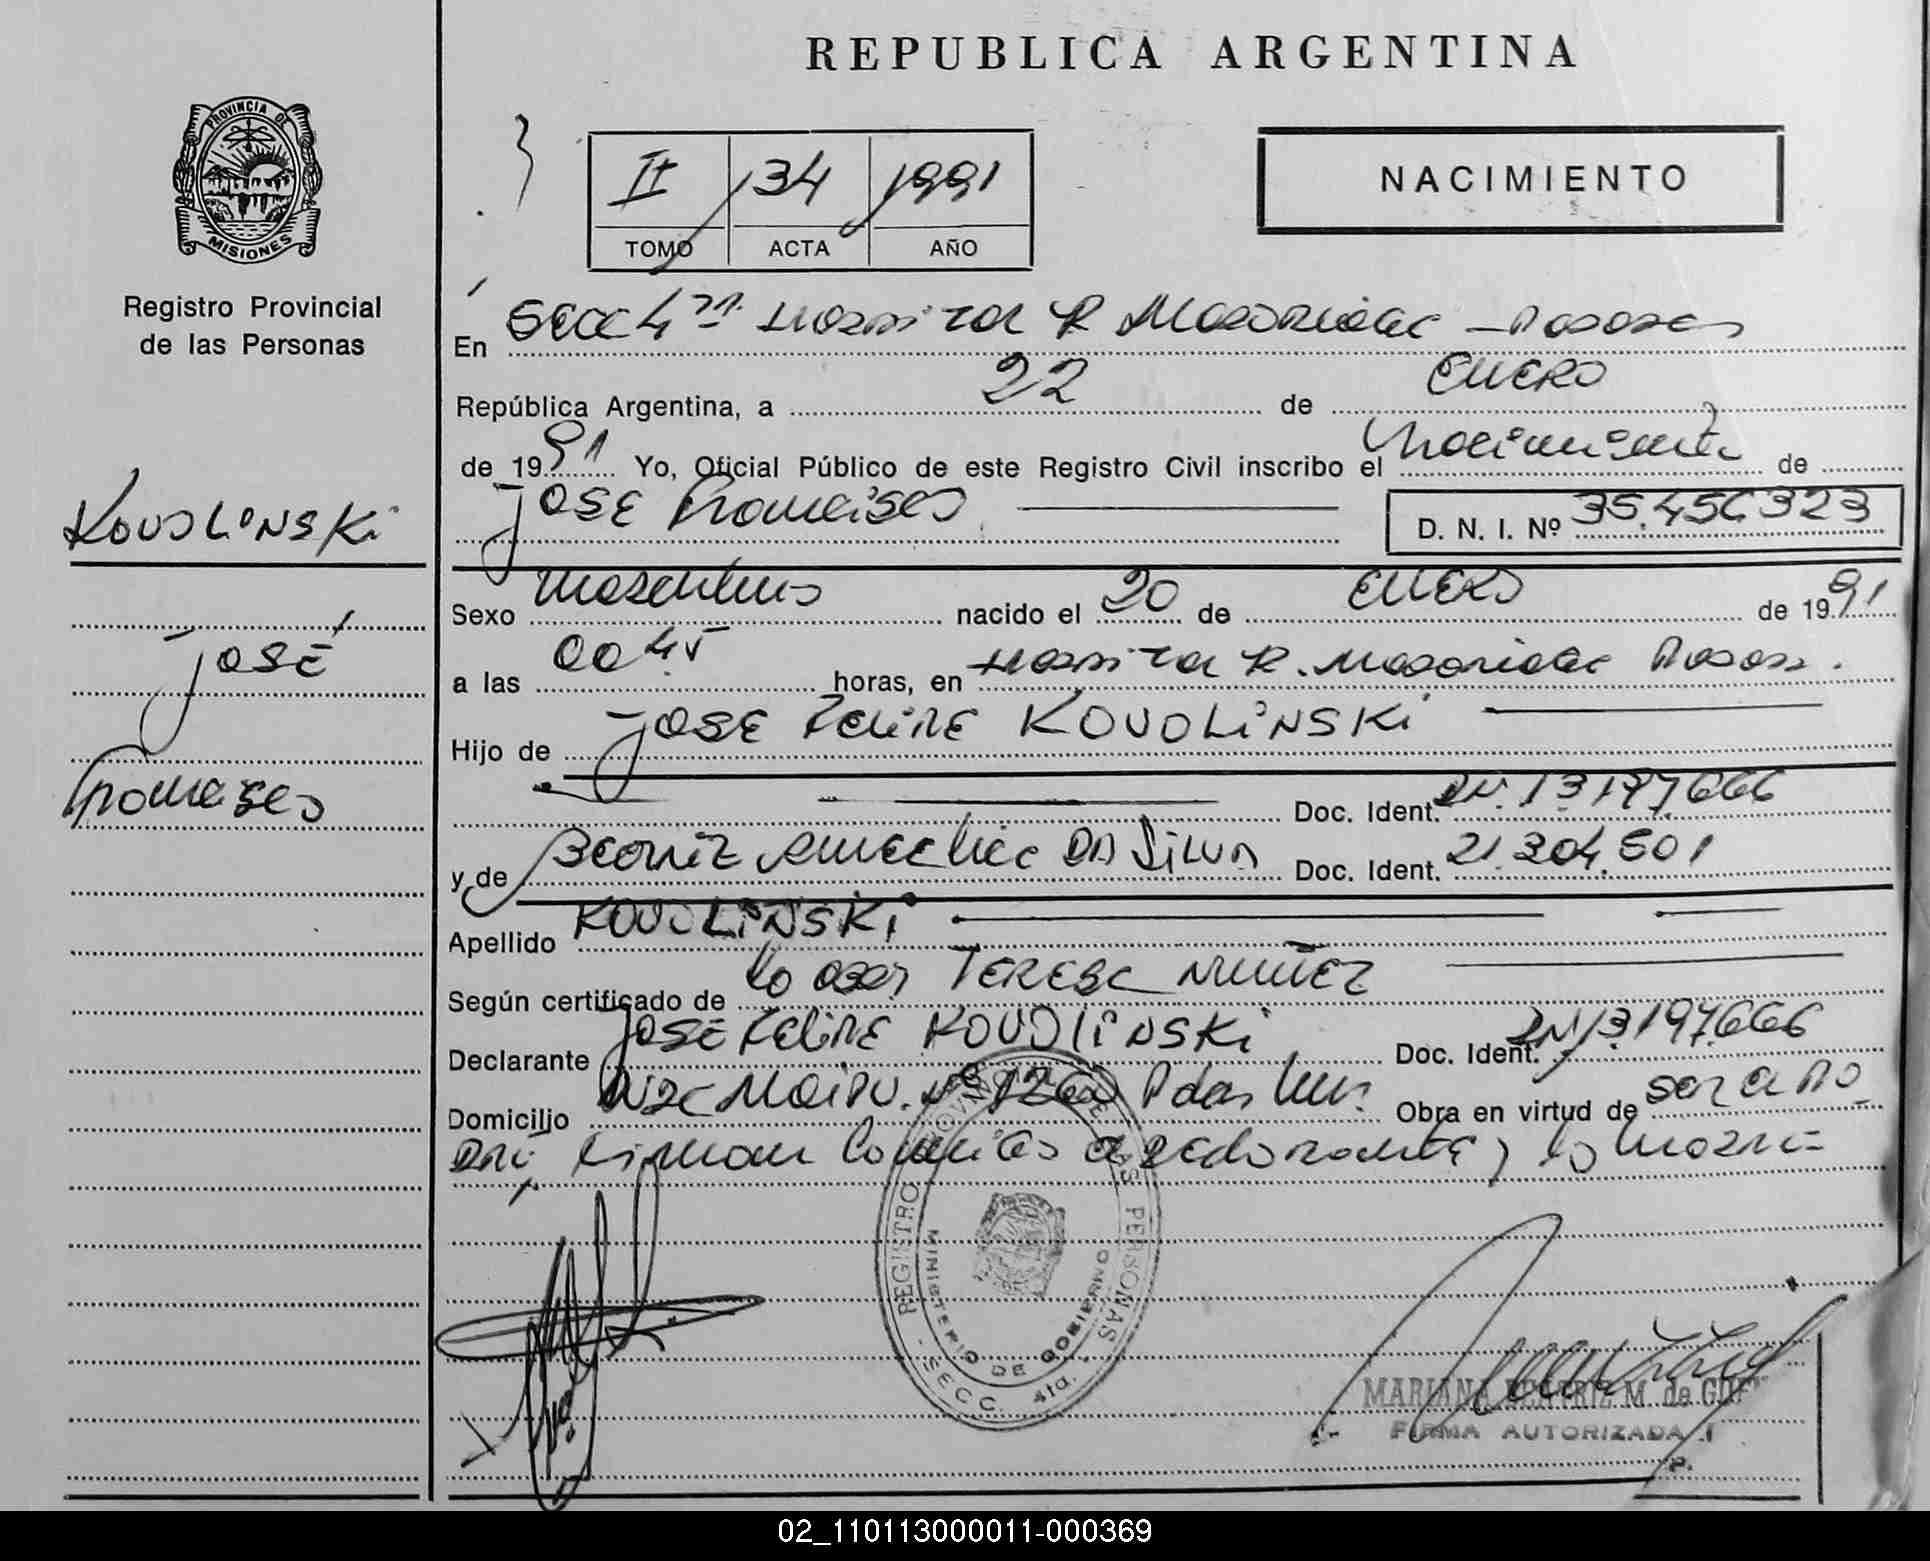 REPUBLICA ARGENTINA
PROVINCIA DE
MISIONES
Registro Provincial
de las Personas
II 134 1991
TOMO ACTA AÑO
NACIMIENTO
En Secc 4ta. Hospital R. Madariaga - Posadas
República Argentina, a 22 de ENERO
de 1991 Yo, Oficial Público de este Registro Civil inscribo el Nacimiento de
JOSE Francisco D. N. I. Nº 35.456323
KOVOLINSKi
JOSÉ
Francisco
Sexo Masculino nacido el 20 de ENERO de 1991
a las 0045 horas, en Hospital R. Madariaga Posadas.
Hijo de JOSE FELIPE KOVOLINSKi
Doc. Ident. 13197.666
y de Beatriz DA SILVA Doc. Ident. 21.304.501
Apellido KOVOLINSKi
Según certificado de TERESA NUÑEZ
Declarante JOSE FELIPE KOVOLINSKi Doc. Ident. 13.197.666
Domicilio Nº 1260 Obra en virtud de ser el PA
DRE Firman la madre
REGISTRO PROVINCIAL DE LAS PERSONAS
MINISTERIO DE GOBIERNO
- SECC. 4ta. -
MARIANA BEATRIZ M. de
FIRMA AUTORIZADA
02_110113000011-000369